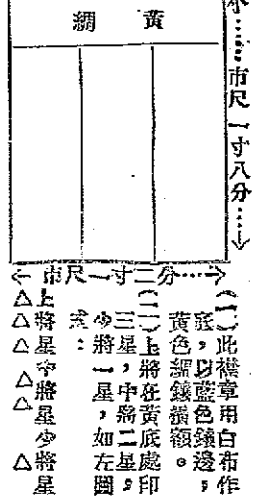 黃綢
市尺一寸八分
市尺一寸二分
(一)此襟章用白布作
底，以藍色鑲邊，
黃色綢鑲襟額。
(二)上將在黃底處印
三星，中將二星，
少將一星，如左圖
式：
上將星中將星少將星
△△△ △△ △